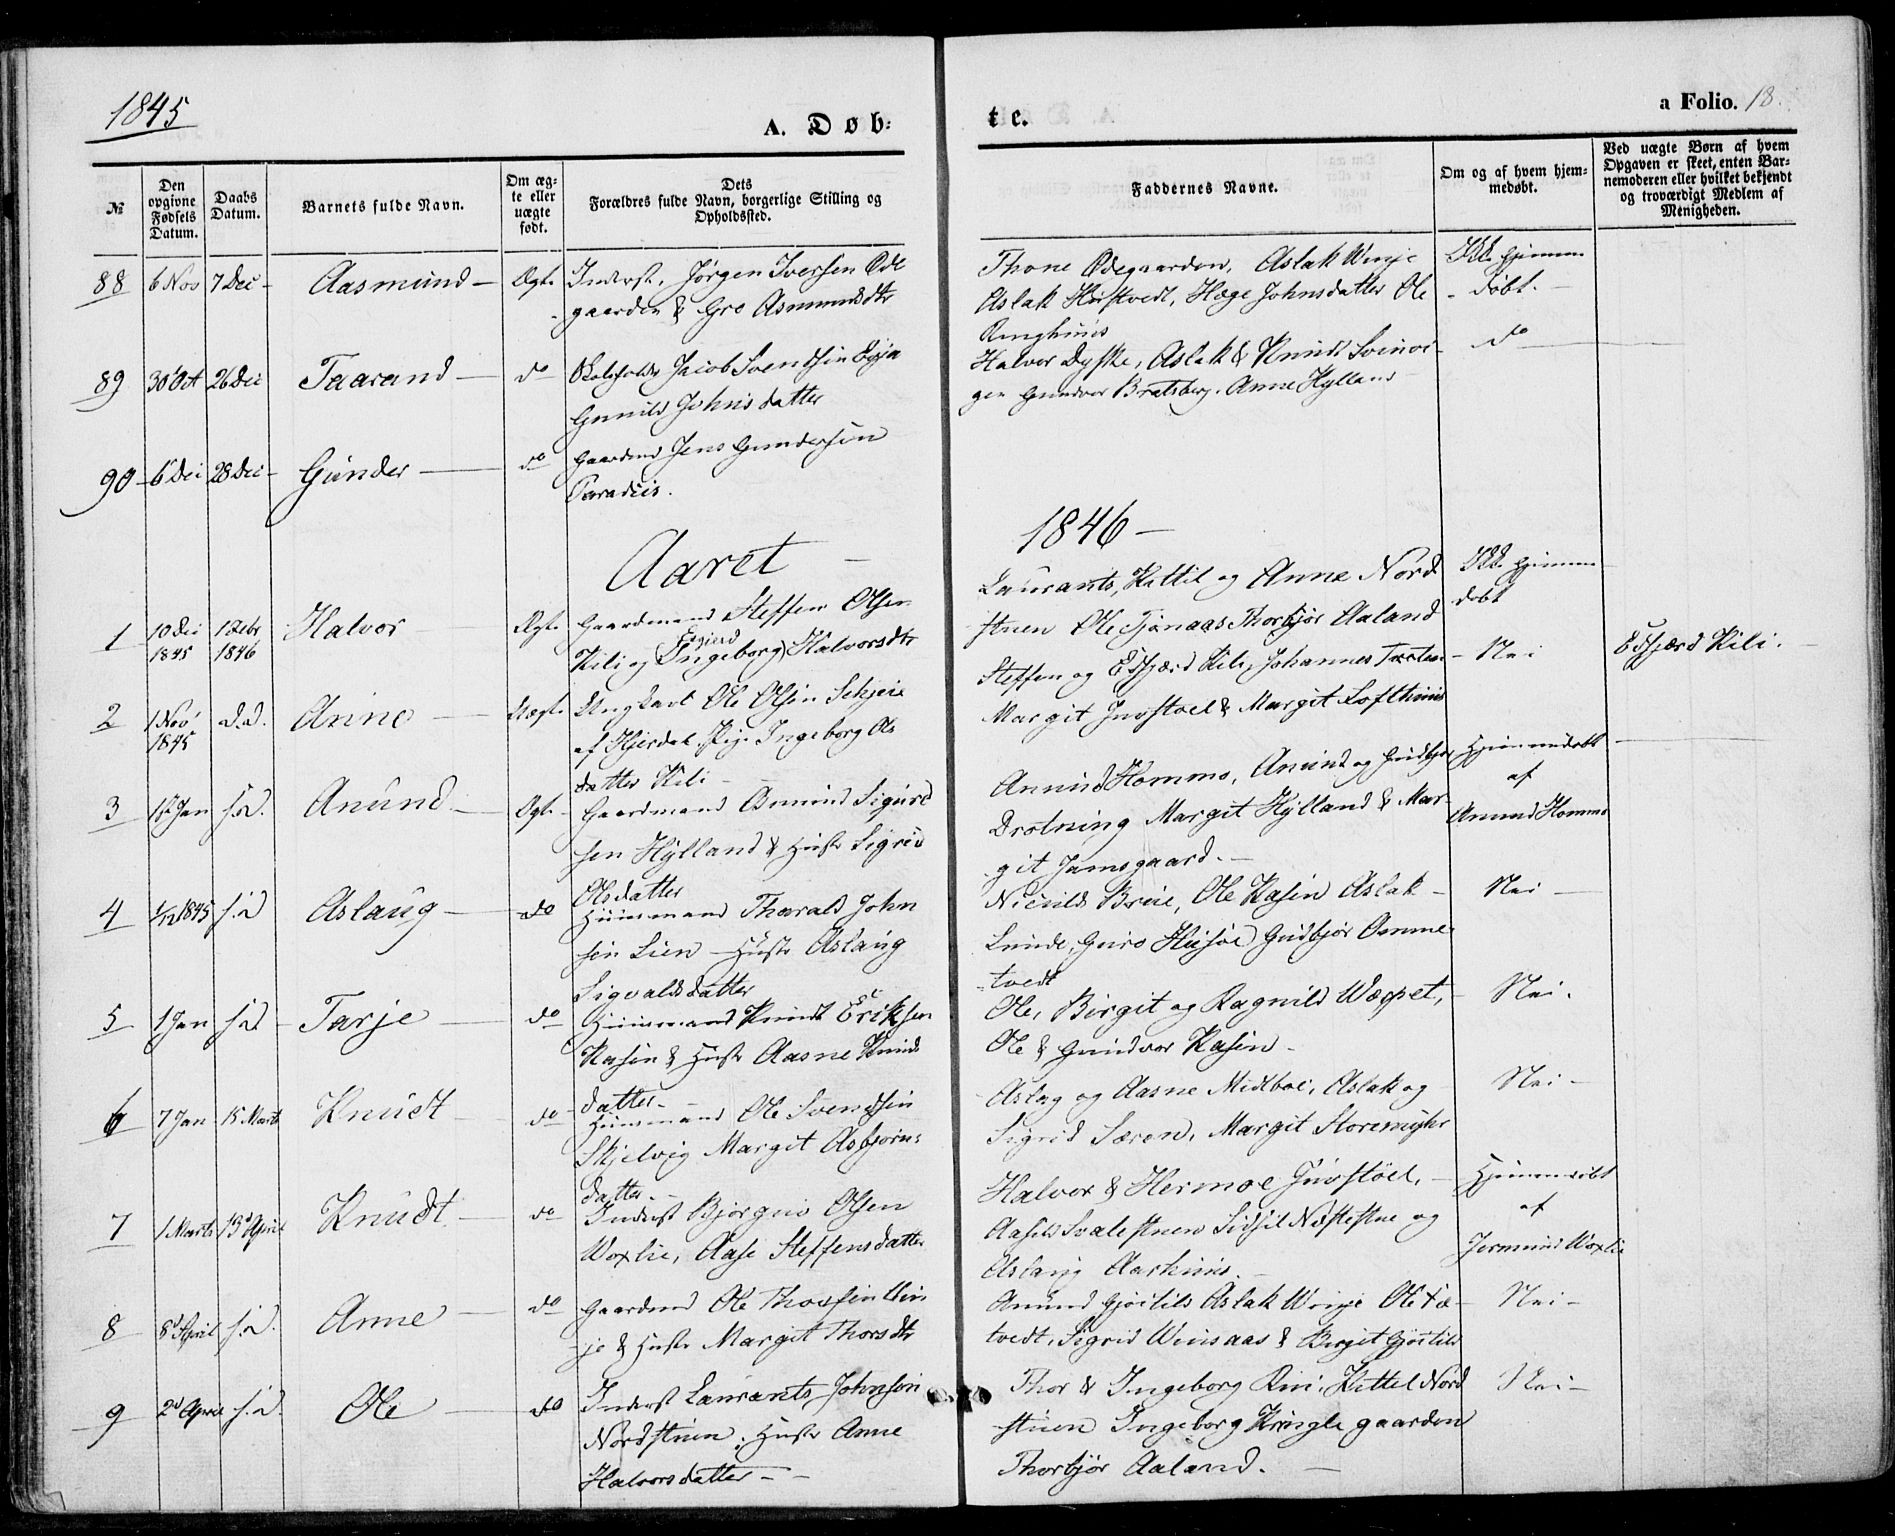 1845
A. Døb:
te.
a Folio. 18.
№
Den opgivne Fødsels Datum.
Daabs Datum.
Barnets fulde Navn.
Om ægte eller uægte født.
Dets Forældres fulde Navn, borgerlige Stilling og Opholdssted.
Faddernes Navne.
Om og af hvem hjemmedøbt.
Ved uægte Børn af hvem Opgaven er skeet, enten Barnemoderen eller hvilket bekjendt og troværdigt Medlem af Menigheden.
88 6 Nov 7 Dec Aasmund Ægte Inderst, Jørgen Iversen Ode
gaarden & Gro Asmundsdtr
Thone Ødegaarden, Aslak Winje
Aslak Hustvedt, Hæge Johnsdatter Ole
Ringhuus
Ikk hjemme
døbt.
89 30 Oct 26 Dec Taarand do Jacob Svendsen
Gunild Johnsdatter
Halvor Dyske, Aslak & Knud Svinvi
gen Gundvor Bratsberg. Anne Hylland
do
90 6 Dec 28 Dec Gunder do Gaardmd Jens Gundersen
Paradiis.
Aaret
1846
1 10 Dec 1 Febr Halvor Ægte Gaardmand Steffen Olsen
1845 1846
Kili og (Ingeborg) Halvorsdtr
Laurants, Kittil og Anne Nord
stuen Ole Tjønaas Thorbjør Aaland
Ikk hjemme
døbt
2 1 Nov d.d. Anne Uægte Ungkarl Ole Olsen Schjeie
1845
af Hjerdal. Pige Ingeborg Ols
datter Kili
Steffen og Edgjærd Kili, Johannes
Margit Juvstoel & Margit Lofthuus
Nei
Edgjærd Kili.
3 Jan s.d. Anund Ægte Gaardmand Asmund Sigurd
sen Hylland & Hustr Sigrid
Olsdatter
Anund Hommo, Anund og Gudbjør
Drotning Margit Hylland & Mar
git Jamsgaard.
Hjemmedøbt
af
Anund Hommo
4 1/12 1845 s.d Aslaug do Huusmand Tharald John
sen Lien Hustr Aslaug
Sigvaldsdatter
Ole Kasin Aslak
Lunde, Guro Gudbjør Omme
tvedt
Nei
5 1 Jan s.d. Tarje do Huusmand Knudt Eriksen
Kasin & Hustr Aasne Knuds
datter
Ole, Birgit og Ragnild Wæpet,
Ole & Gundvor Kasin
Nei.
6 7 Jan 15 Marts Knudt do Huusmand Ole Svendsen
Skjelvig Margit Asbjørns
datter.
Aslag og Aasne Midboe, Aslak og
Sigrid Særen, Margit Storemyhr
Nei
7 1 Marts 13 April Knudt do Inderst Bjørguv Olsen
Woxlie, Aase Steffensdatter
Halvor & Hermoe Juvstoel,
Aasild Svalestuen Sidsil Næstestue og
Aslaug Aarhuus.
Hjemmedøbt
af
Jermund Woxlie
8 8 April s.d. Anne do Gaardmd Ole Thovsen Win
je & Hustr Margit Thorsdtr
Anund Gjøitils Aslak Winje Ole
tvedt, Sigrid Winsaas & Birgit Gjøitils
Nei
9 2 April s.d. Ole do Inderst Laurants Johnsen
Nordstuen, Hustr Anne
Halvorsdatter
Thor & Ingeborg Rui, Kittel Nord
stuen Ingeborg Kringlegaarden
Thorbjør Aaland.
Nei